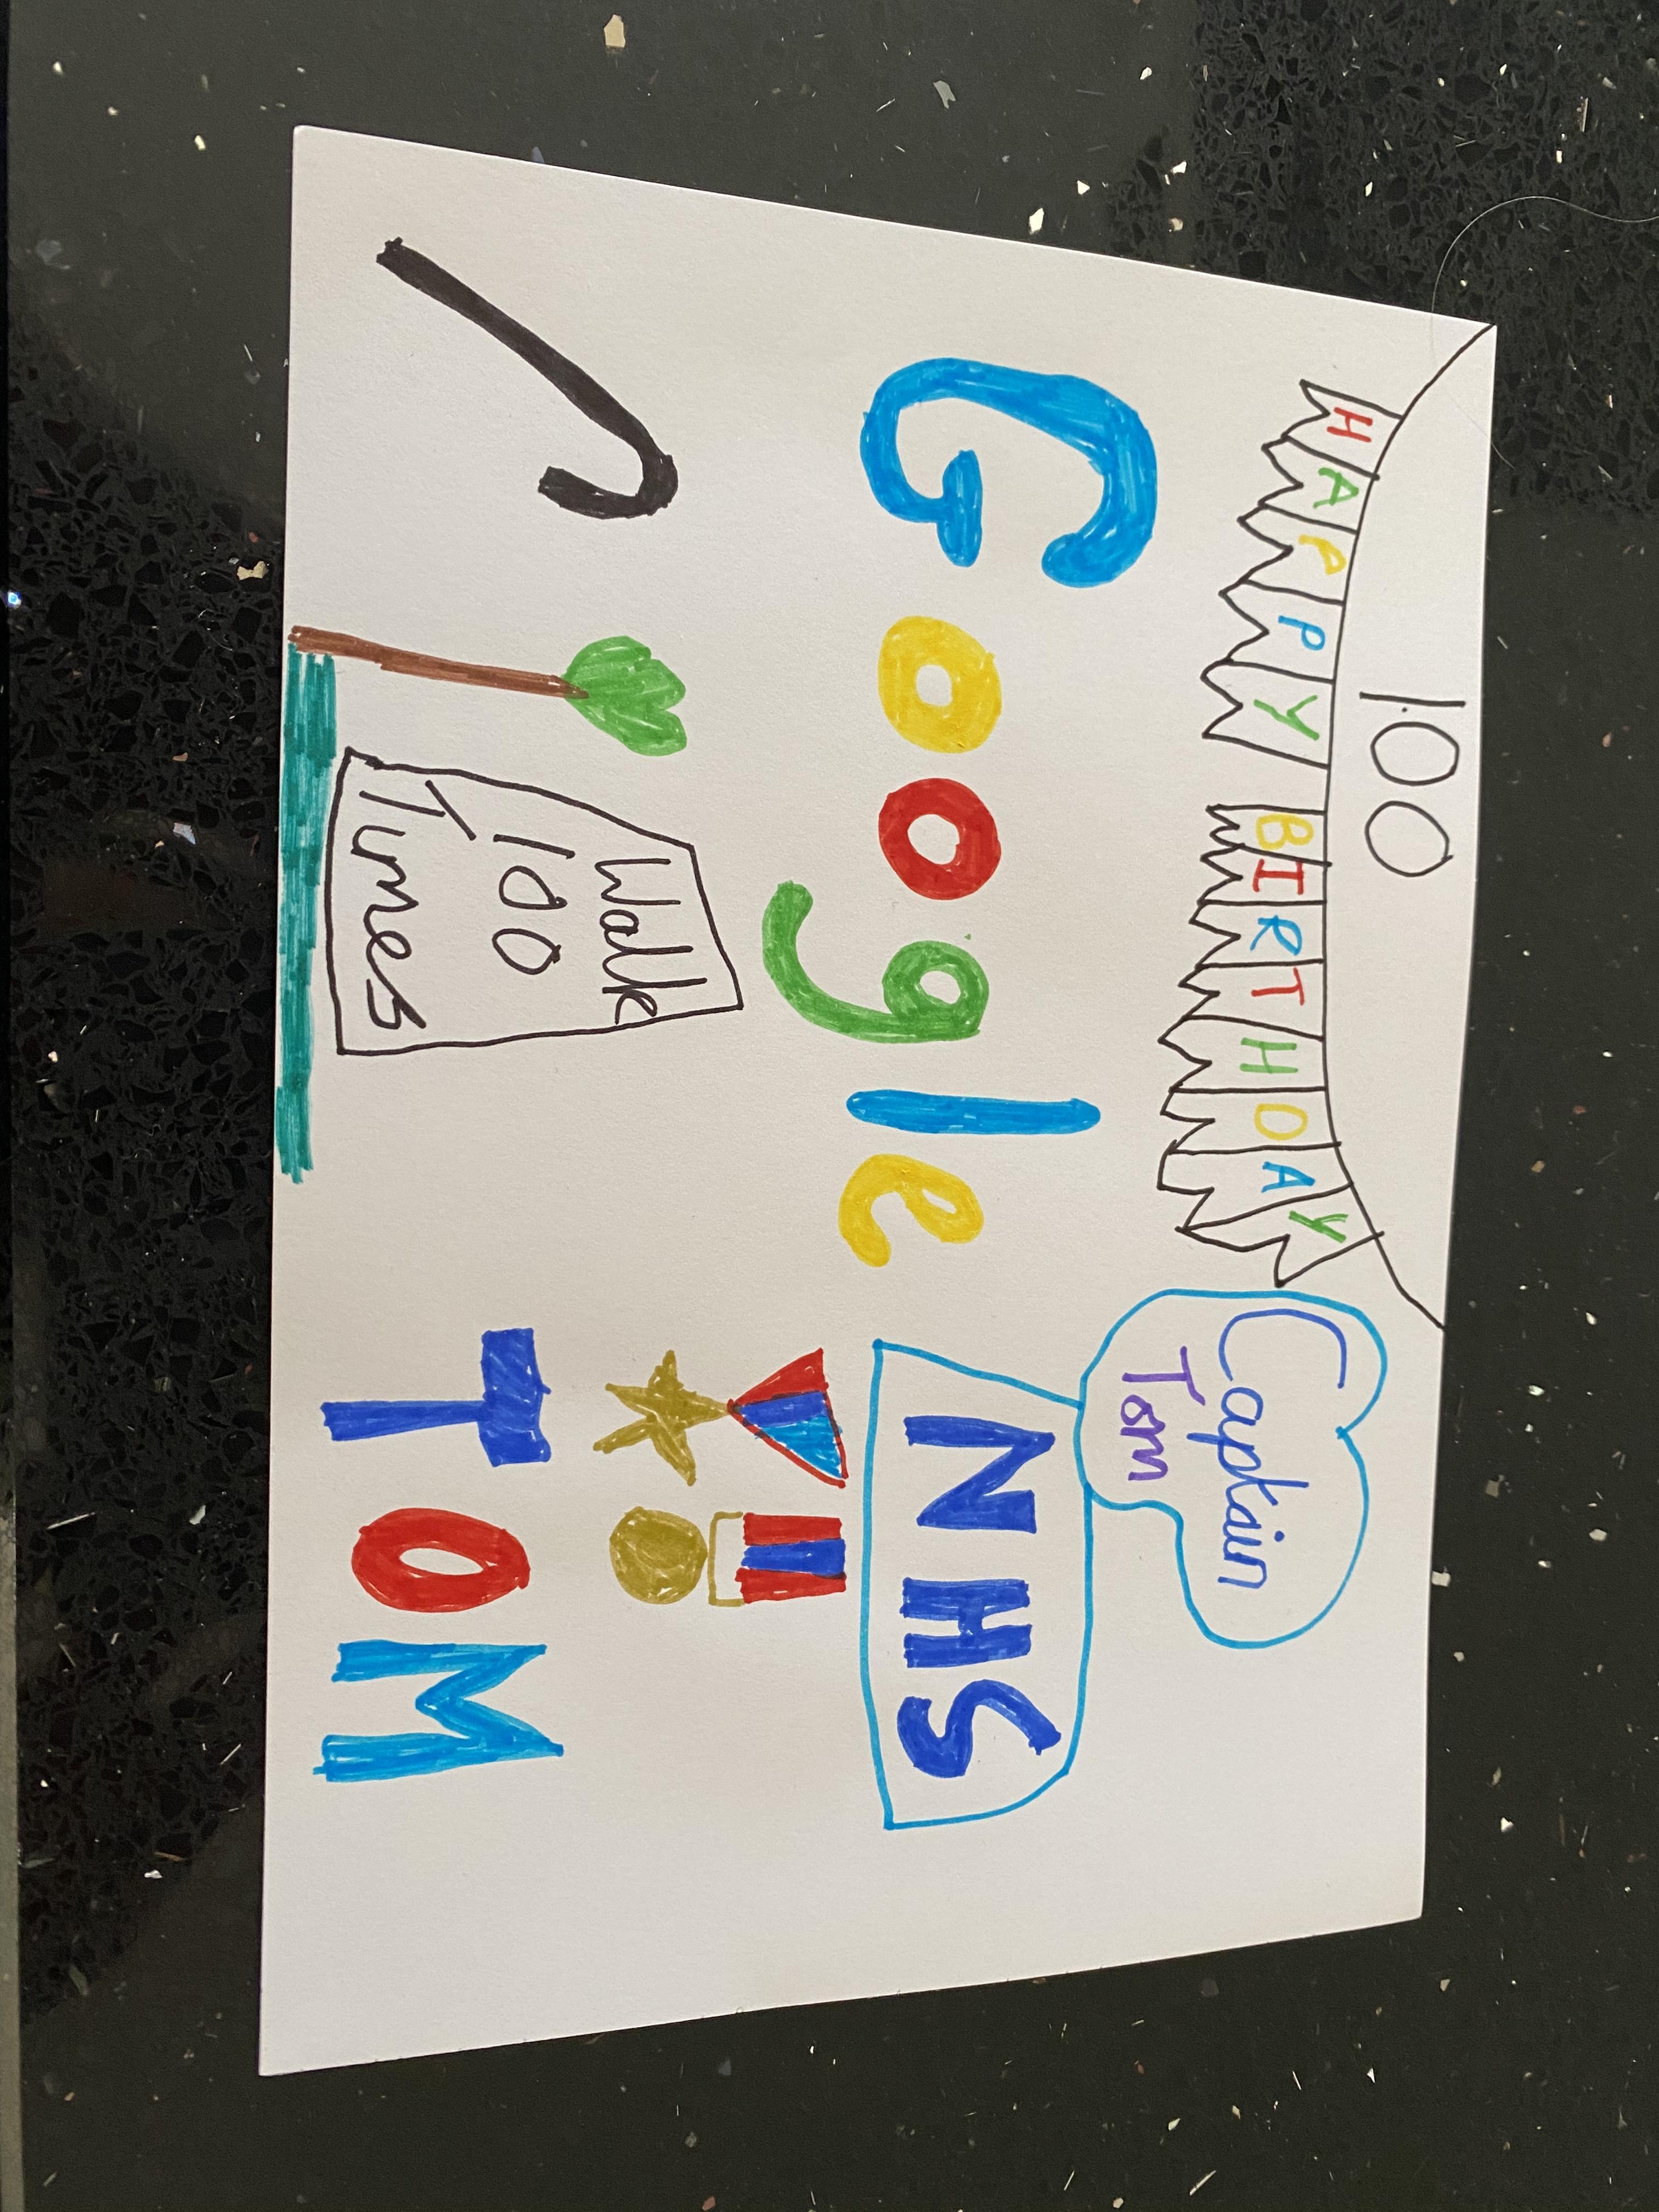 100
HAPPY BIRTHDAY
Captain
Tom
Google
NHS
Walk
100
Times
TOM